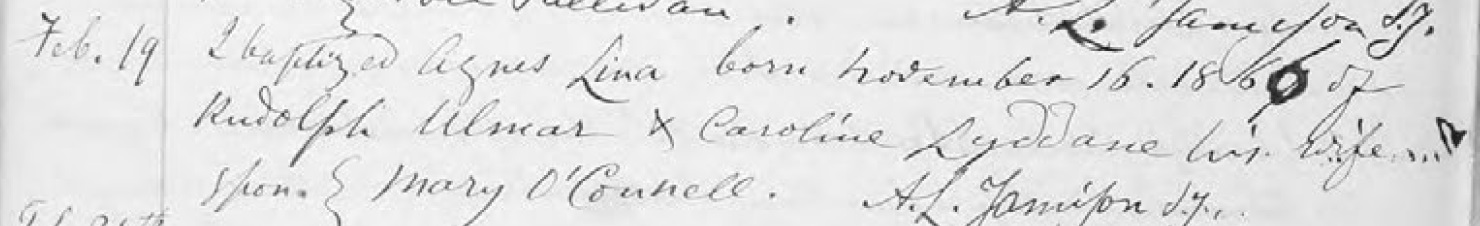 Sullivan. A. L. Jamison S.J.
Feb. 19 I baptized Agnes Lina born November 16. 1866 of
Rudolph Ulmar & Caroline Lyddane his wife...
spon. Mary O'Connell. A.L. Jamison S.J..